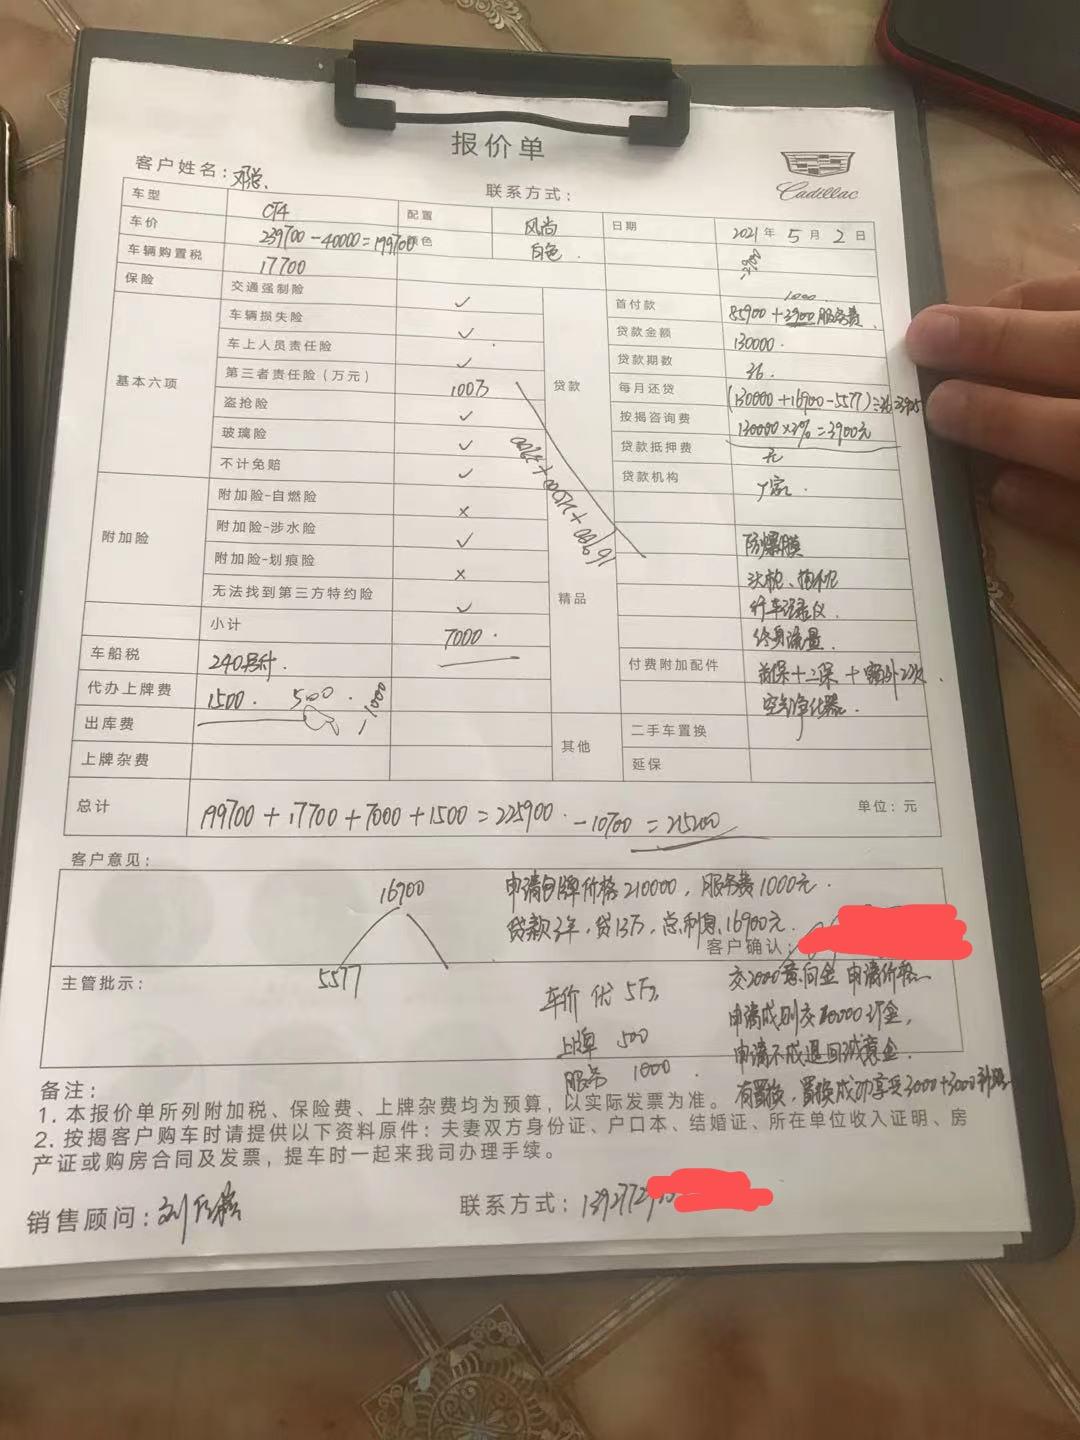 报价单
Cadillac
客户姓名：邓总
联系方式：
车型 CT4 配置 风尚 日期 2021年5月2日
车价 239700-40000=199700 颜色 白色
车辆购置税 17700
保险 交通强制险 ✓
基本六项
车辆损失险 ✓
车上人员责任险 ✓
第三者责任险（万元） 100万
盗抢险 ✓
玻璃险 ✓
不计免赔 ✓
附加险
附加险-自燃险 ×
附加险-涉水险 ✓
附加险-划痕险 ×
无法找到第三方特约险 ✓
小计 7000.
车船税 240另计.
代办上牌费 1500. 500. -1000
出库费
上牌杂费
贷款
1000
首付款 85900+3900服务费
贷款金额 130000.
贷款期数 36.
每月还贷 (130000+16900-5577)÷36=3925
按揭咨询费 130000×3%=3900元
贷款抵押费 元
贷款机构 厂家.
精品
防爆膜
头枕、抱枕
行车记录仪
终身流量
付费附加配件 首保+二保+额外2次
空气净化器.
其他
二手车置换
延保
总计 199700+17700+7000+1500=225900.-10700=215200 单位：元
客户意见：
16900
5577
申请白牌价格210000，服务费1000元.
贷款3年，贷13万，总利息16900元.
客户确认：
主管批示：
车价优5万.
上牌 500
服务 1000.
交2000意向金 申请价格
申请成则交10000订金，
申请不成退回诚意金.
有置换，置换成功享受3000+3000补贴
备注：
1. 本报价单所列附加税、保险费、上牌杂费均为预算，以实际发票为准。
2. 按揭客户购车时请提供以下资料原件：夫妻双方身份证、户口本、结婚证、所在单位收入证明、房
产证或购房合同及发票，提车时一起来我司办理手续。
销售顾问：刘
联系方式：1392772